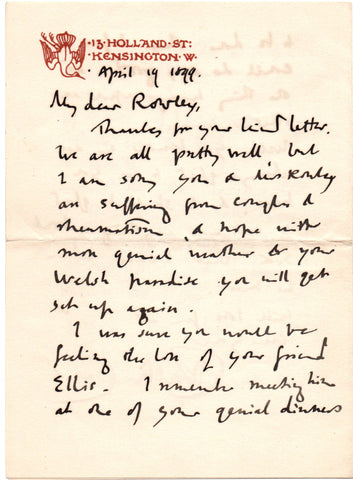 ·13·HOLLAND·ST:
·KENSINGTON·W·
April 19 1899.
My dear Rowley,
Thanks for your kind letter.
We are all pretty well, but
I am sorry you & Mrs Rowley
are suffering from coughs &
rheumatism, & hope with
more genial weather & your
Welsh paradise you will get
set up again.
I was sure you would be
feeling the loss of your friend
Ellis. I remember meeting him
at one of your genial dinners